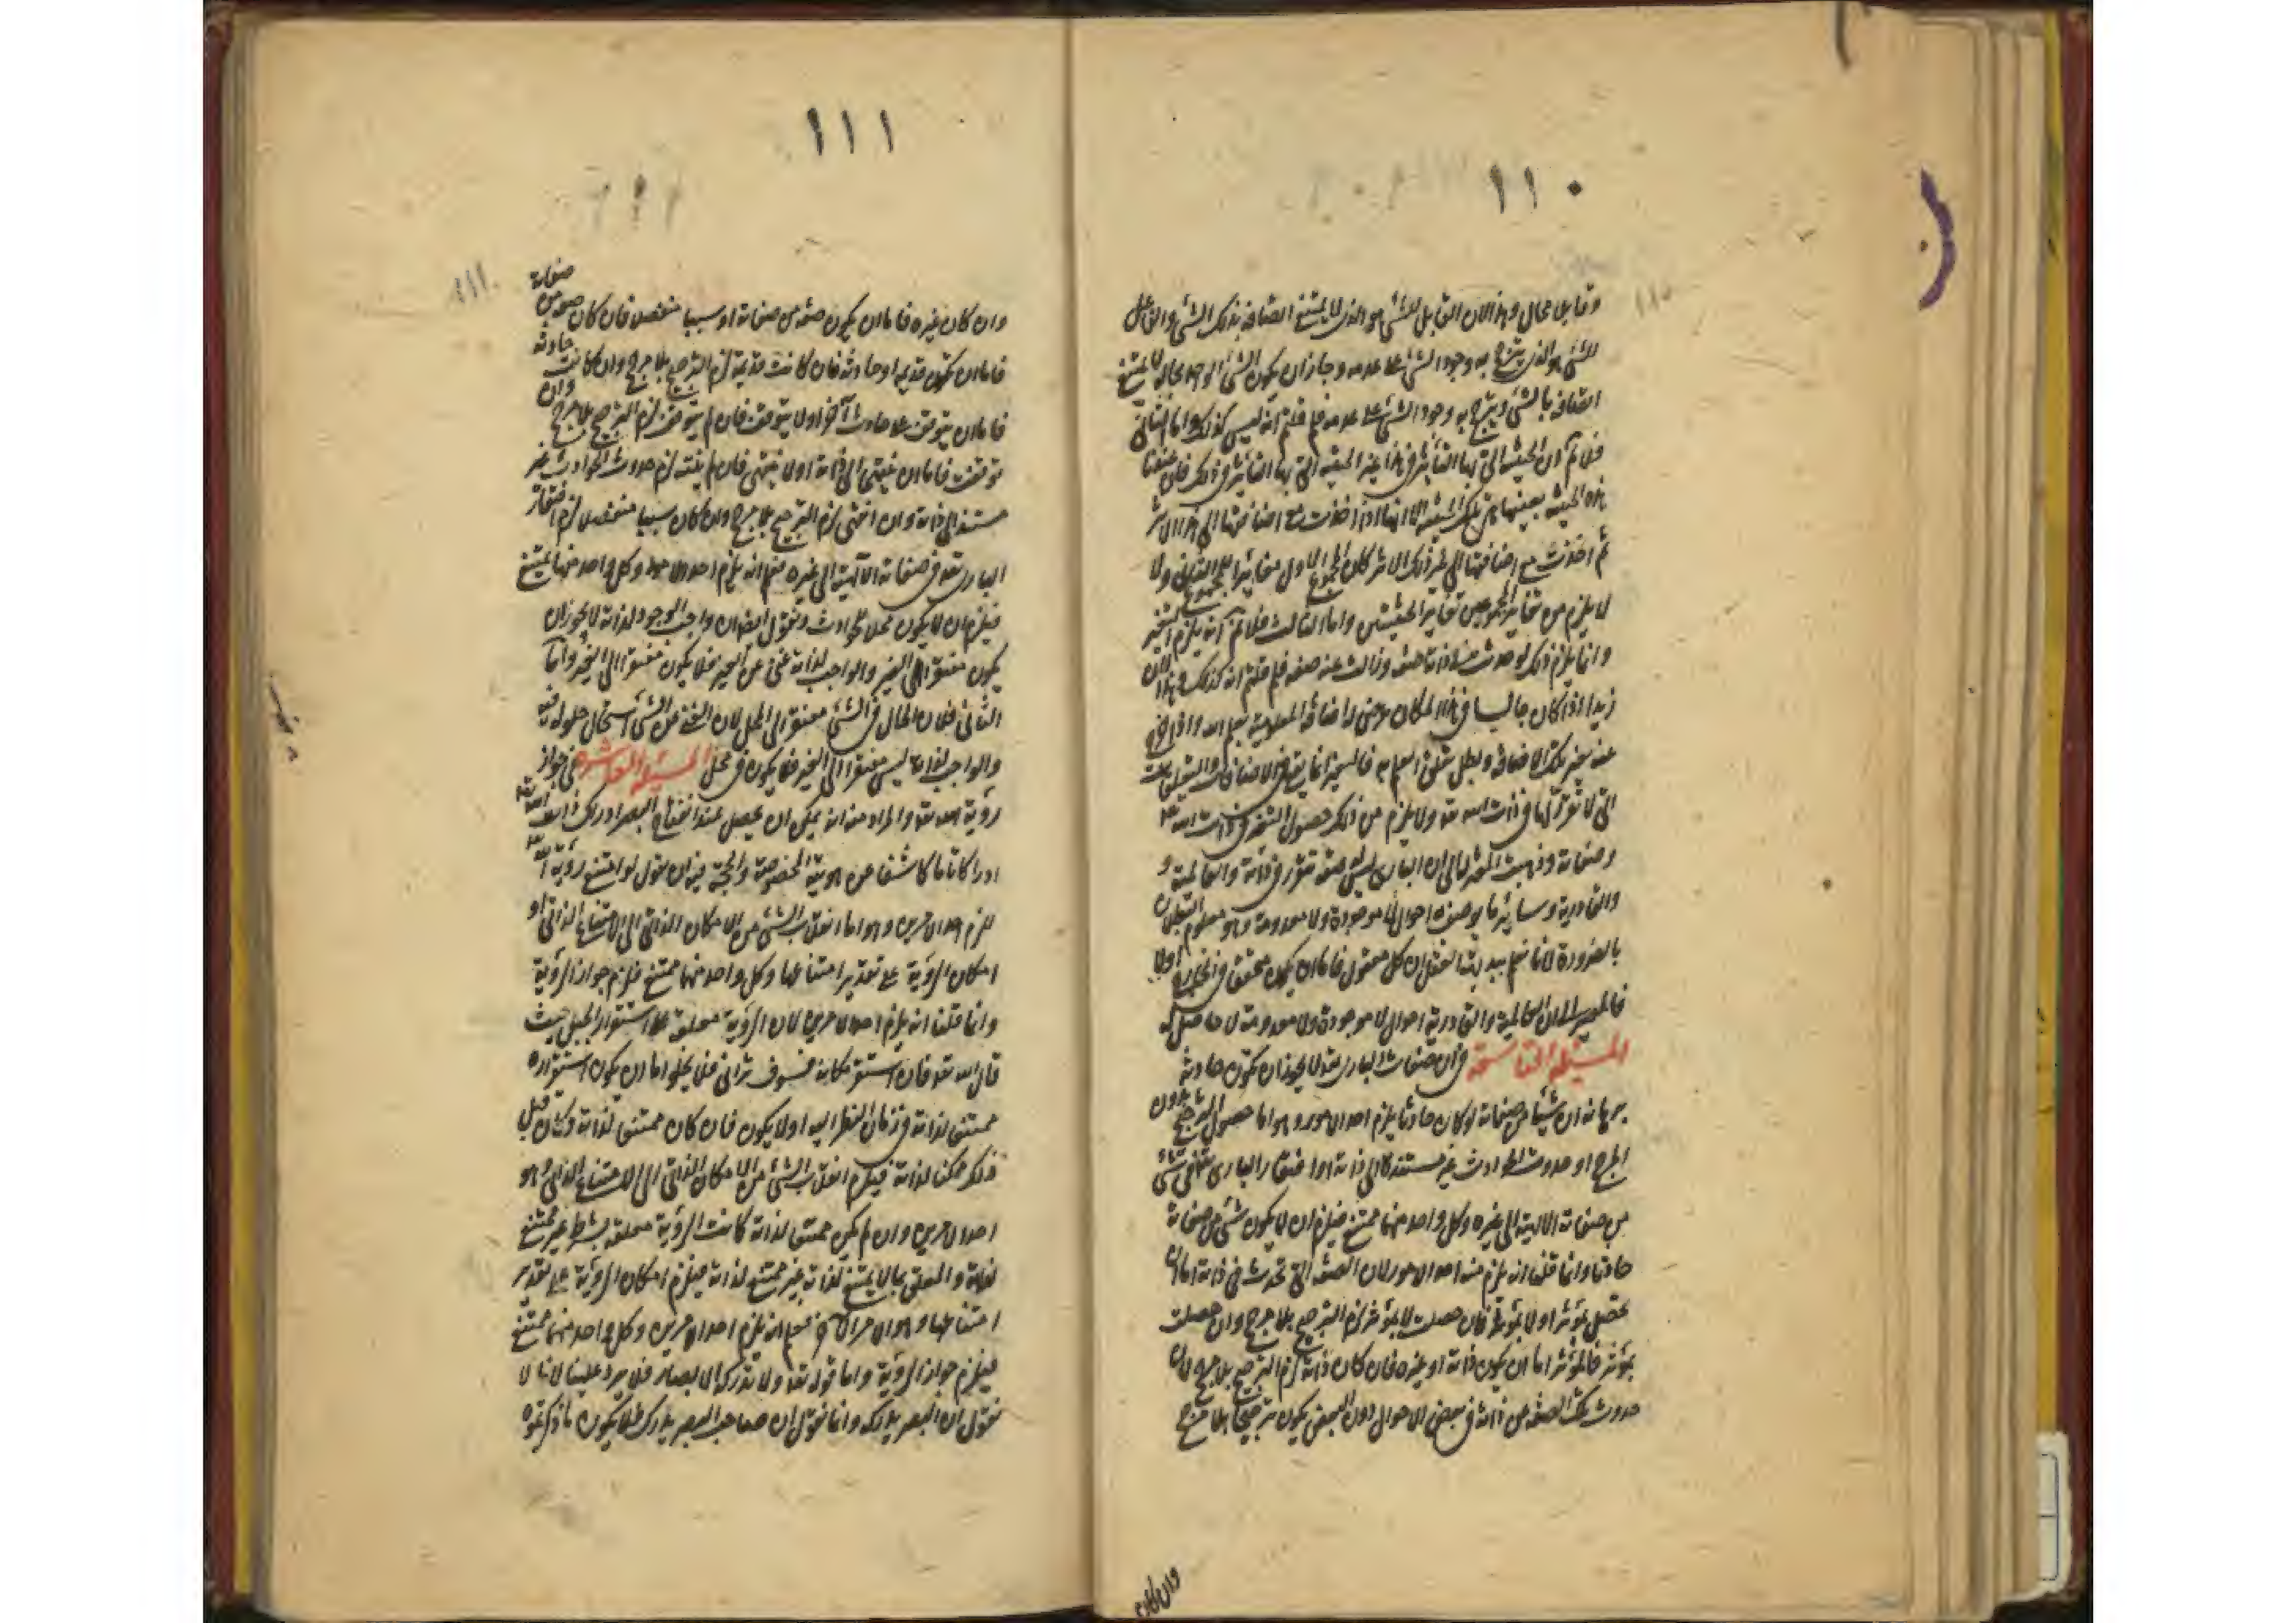 ١١٠
وقابلا محال وهذا لان القابل للشئ هو الذى لا يمتنع اتصافه بذلك الشئ والفاعل
للشئ هو الذى يترجح به وجود الشئ على عدمه وجاز ان يكون الشئ الواحد بحاله لا يمتنع
اتصافه بالشئ ويترجح به وجود الشئ على عدمه فلم قلتم انه ليس كذلك واما الثانى
فلا نم ان الحيثية التى بها التأثير فى هذا غير الحيثية التى بها التأثير فى ذلك فان عندنا
هذه الحيثية بعينها هى تلك الحيثية الا انها اذا اخذت مع اضافتها الى هذا الاثر
ثم اخذت مع اضافتها الى ذلك الاثر كان المجموع الاول مغايرا للمجموع الثانى ولا
لا يلزم من تغاير المجموعين تغاير الحيثيتين واما الثالث فلا نم انه يلزم التغير
وانما يلزم ذلك لو حدث فى ذاته صفة وزالت عنه صفة فلم قلتم انه كذلك وهذا لان
زيدا اذا كان جالسا فى هذا المكان عرض له اضافة المعلومية بعلم الله واذا خرج
عنه تغير تلك الاضافة وبطل تعلق العلم به فالتغير انما يقع فى الاضافات والتعلقات
التى لا تقرر لها فى ذات الله تعه ولا يلزم من ذلك حصول التغير فى ذات الله تعه
وصفاته وذهبت المعتزلة الى ان البارى ليس له صفة تتقرر فى ذاته والعالمية و
والقادرية وسائر ما يوصف به احوال لا موجودة ولا معدومة وهو معلوم البطلان
بالضرورة لانا نعلم ببديهة العقل ان كل معقول فاما ان يكون محققا فى الخارج اولا
فالمصير الى ان العالمية والقادرية احوال لا موجودة ولا معدومة لا حاصل له
المسئلة التاسعة فى ان صفات البارى تعه لا يجوز ان تكون حادثة
برهانه ان شيئا من صفاته لو كان حادثا يلزم احد الامور وهو اما حصول الترجيح بدون
المرجح او حدوث الحوادث غير مستندة الى ذاته او افتقار البارى تعه فى شئ
من صفاته الالهية الى غيره وكل واحد منها ممتنع فيلزم ان لا يكون شئ من صفاته
حادثا وانما قلنا انه يلزم منه احد الامور لان الصفة التى تحدث فى ذاته اما ان
تحصل بمؤثر او لا بمؤثر فان حصلت لا بمؤثر لزم الترجيح بلا مرجح وان حصلت
بمؤثر فالمؤثر اما ان يكون ذاته او غيره فان كان ذاته لزم الترجيح بلا مرجح لان
حدوث تلك الصفة من ذاته فى بعض الاحوال دون البعض يكون ترجيحا بلا مرجح
وان كان
١١١
وان كان غيره فاما ان يكون صفة من صفاته او سببا منفصلا فان كان صفة من صفاته
فاما ان تكون قديمة او حادثة فان كانت قديمة لزم الترجيح بلا مرجح وان كانت حادثة
فاما ان يتوقف على حادث آخر او لا يتوقف فان لم يتوقف لزم الترجيح بلا مرجح وان
توقفت فاما ان ينتهى الى ذاته اولا ينتهى فان لم ينته لزم حدوث الحوادث غير
مستند الى ذاته وان انتهى لزم الترجيح بلا مرجح وان كان سببا منفصلا لزم افتقار
البارى تعه فى صفاته الالهية الى غيره فعلم انه يلزم احد الامور وكل واحد منها ممتنع
فيلزم ان لا يكون محلا للحوادث ونقول ايضا ان واجب الوجود لذاته لا يجوز ان
يكون مفتقرا الى الغير والواجب لذاته غنى عن الغير فلا يكون مفتقرا الى الغير واما
الثانى فلان الحال فى الشئ مفتقر الى المحل لان الغنى عن الشئ استحال حلوله فيه
والواجب لذاته ليس مفتقرا الى الغير فلا يكون فى محل المسئلة العاشرة فى جواز
رؤية الله تعه والمراد منه انه يمكن ان يحصل عند انفتاح البصر ادراك ذات الله تعه
ادراكا تاما كاشفا عن هويته المخصوصة والحجة فيه ان نقول لو امتنع رؤية الله تعه
للزم احد الامرين وهو اما انقلاب الشئ من الامكان الذاتى الى الامتناع الذاتى او
امكان الرؤية على تقدير امتناعها وكل واحد منهما ممتنع فلزم جواز الرؤية
وانما قلنا انه يلزم احد الامرين لان الرؤية معلقة على استقرار الجبل حيث
قال الله تعه فان استقر مكانه فسوف ترانى فلا يخلوا اما ان يكون استقراره
ممتنعا لذاته فى زمان النظر اليه اولا يكون فان كان ممتنعا لذاته وكان قبل
ذلك ممكنا لذاته فيلزم انقلاب الشئ من الامكان الذاتى الى الامتناع الذاتى وهو
احد الامرين وان لم يكن ممتنعا لذاته كانت الرؤية معلقة بشرط غير ممتنع
لذاته والمعلق بما لا يمتنع لذاته غير ممتنع لذاته فيلزم امكان الرؤية على تقدير
امتناعها وهو الامر الآخر فعلم انه يلزم احد الامرين وكل واحد منهما ممتنع
فيلزم جواز الرؤية واما قوله تعه ولا تدركه الابصار فلا يرد علينا لانا لا
نقول ان البصر يدركه وانما نقول ان صاحب البصر يدركه فلا يكون ما ذكرتموه